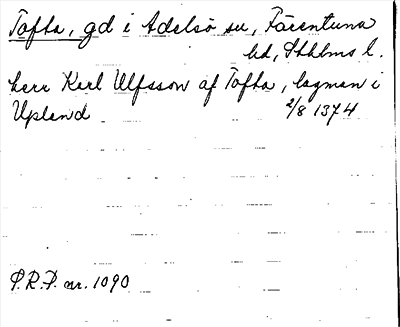 Tofta, gd i Adelsö sn, Färentuna
hd, Sthlms l.
herr Karl Ulfsson af Tofta, lagman i
Upland 2/8 1374
P.R.P. nr. 1090